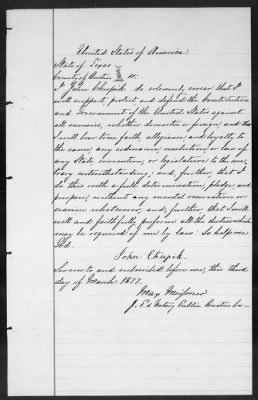 United States of America
State of Texas
County of Austin ss:
I, John Chupik do solemnly swear that I
will support, protect and defend the Constitution
and Government of the United States against
all enemies, whether domestic or foreign, and that
I will bear true faith, allegiance and loyalty to
the same, any ordinance, resolution, or law of
any State, convention, or legislature to the con-
trary notwithstanding; and, further, that I
do this with a full determination, pledge, and
purpose, without any mental reservation or
evasion whatsoever; and, further, that I will
well and faithfully perform all the duties which
may be required of me by law: So help me
God.
John Chupik.
Sworn to and subscribed before me, this third
day of March 1877.
Notary Public Austin Co-